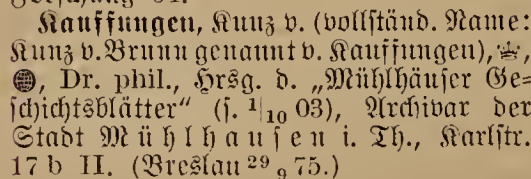 Kauffungen, Kunz v. (vollständ. Name:
Kunz v. Brunn genannt v. Kauffungen),
Dr. phil., Hrsg. d. „Mühlhäuser Ge=
schichtsblätter“ (s. 1/10 03), Archivar der
Stadt Mühlhausen i. Th., Karlstr.
17 b II. (Breslau 29/9 75.)